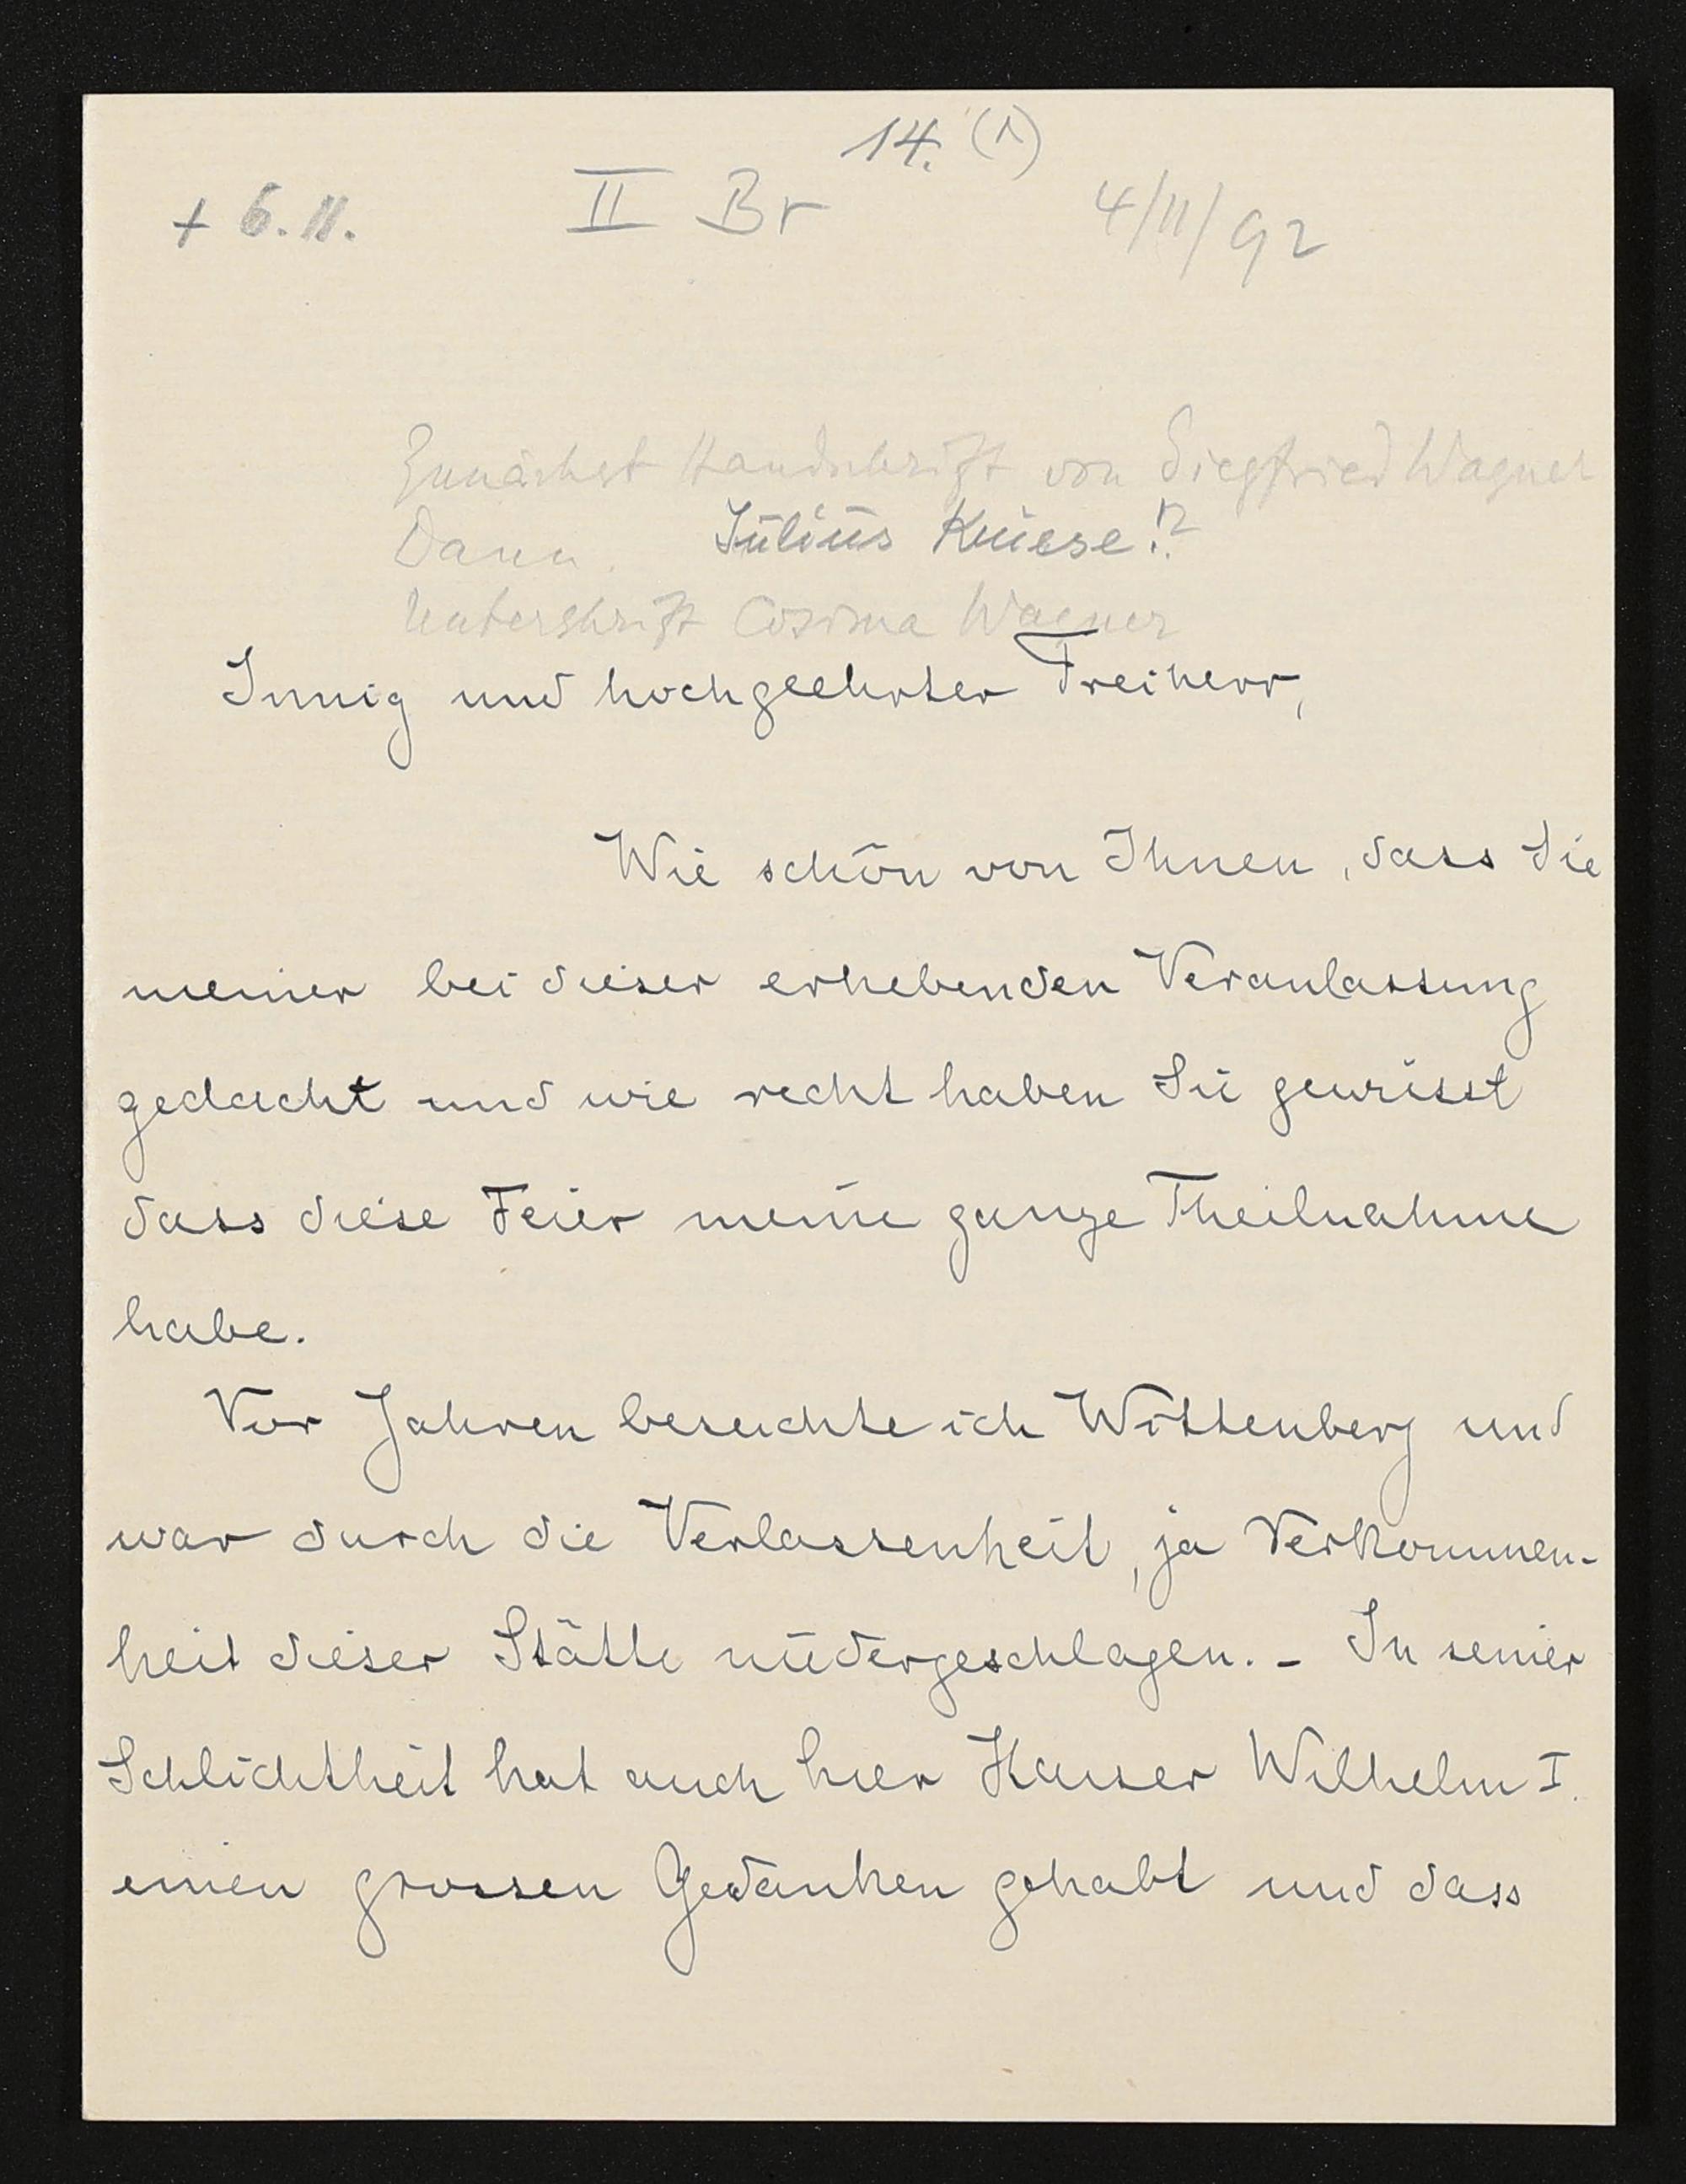 14. (1)
+ 6.11. II Br 4/11/92
Zunächst Handschrift von Siegfried Wagner
Dann Julius Kniese!?
Unterschrift Cosima Wagner
Innig und hochgeehrter Freiherr,
Wie schön von Ihnen, dass Sie
meiner bei dieser erhebenden Veranlassung
gedacht und wie recht haben Sie gewusst
dass diese Feier meine ganze Theilnahme
habe.
Vor Jahren besuchte ich Wittenberg und
war durch die Verlassenheit, ja Verkommen-
heit dieser Stätte niedergeschlagen. - In seiner
Schlichtheit hat auch hier Kaiser Wilhelm I.
einen grossen Gedanken gehabt und dass